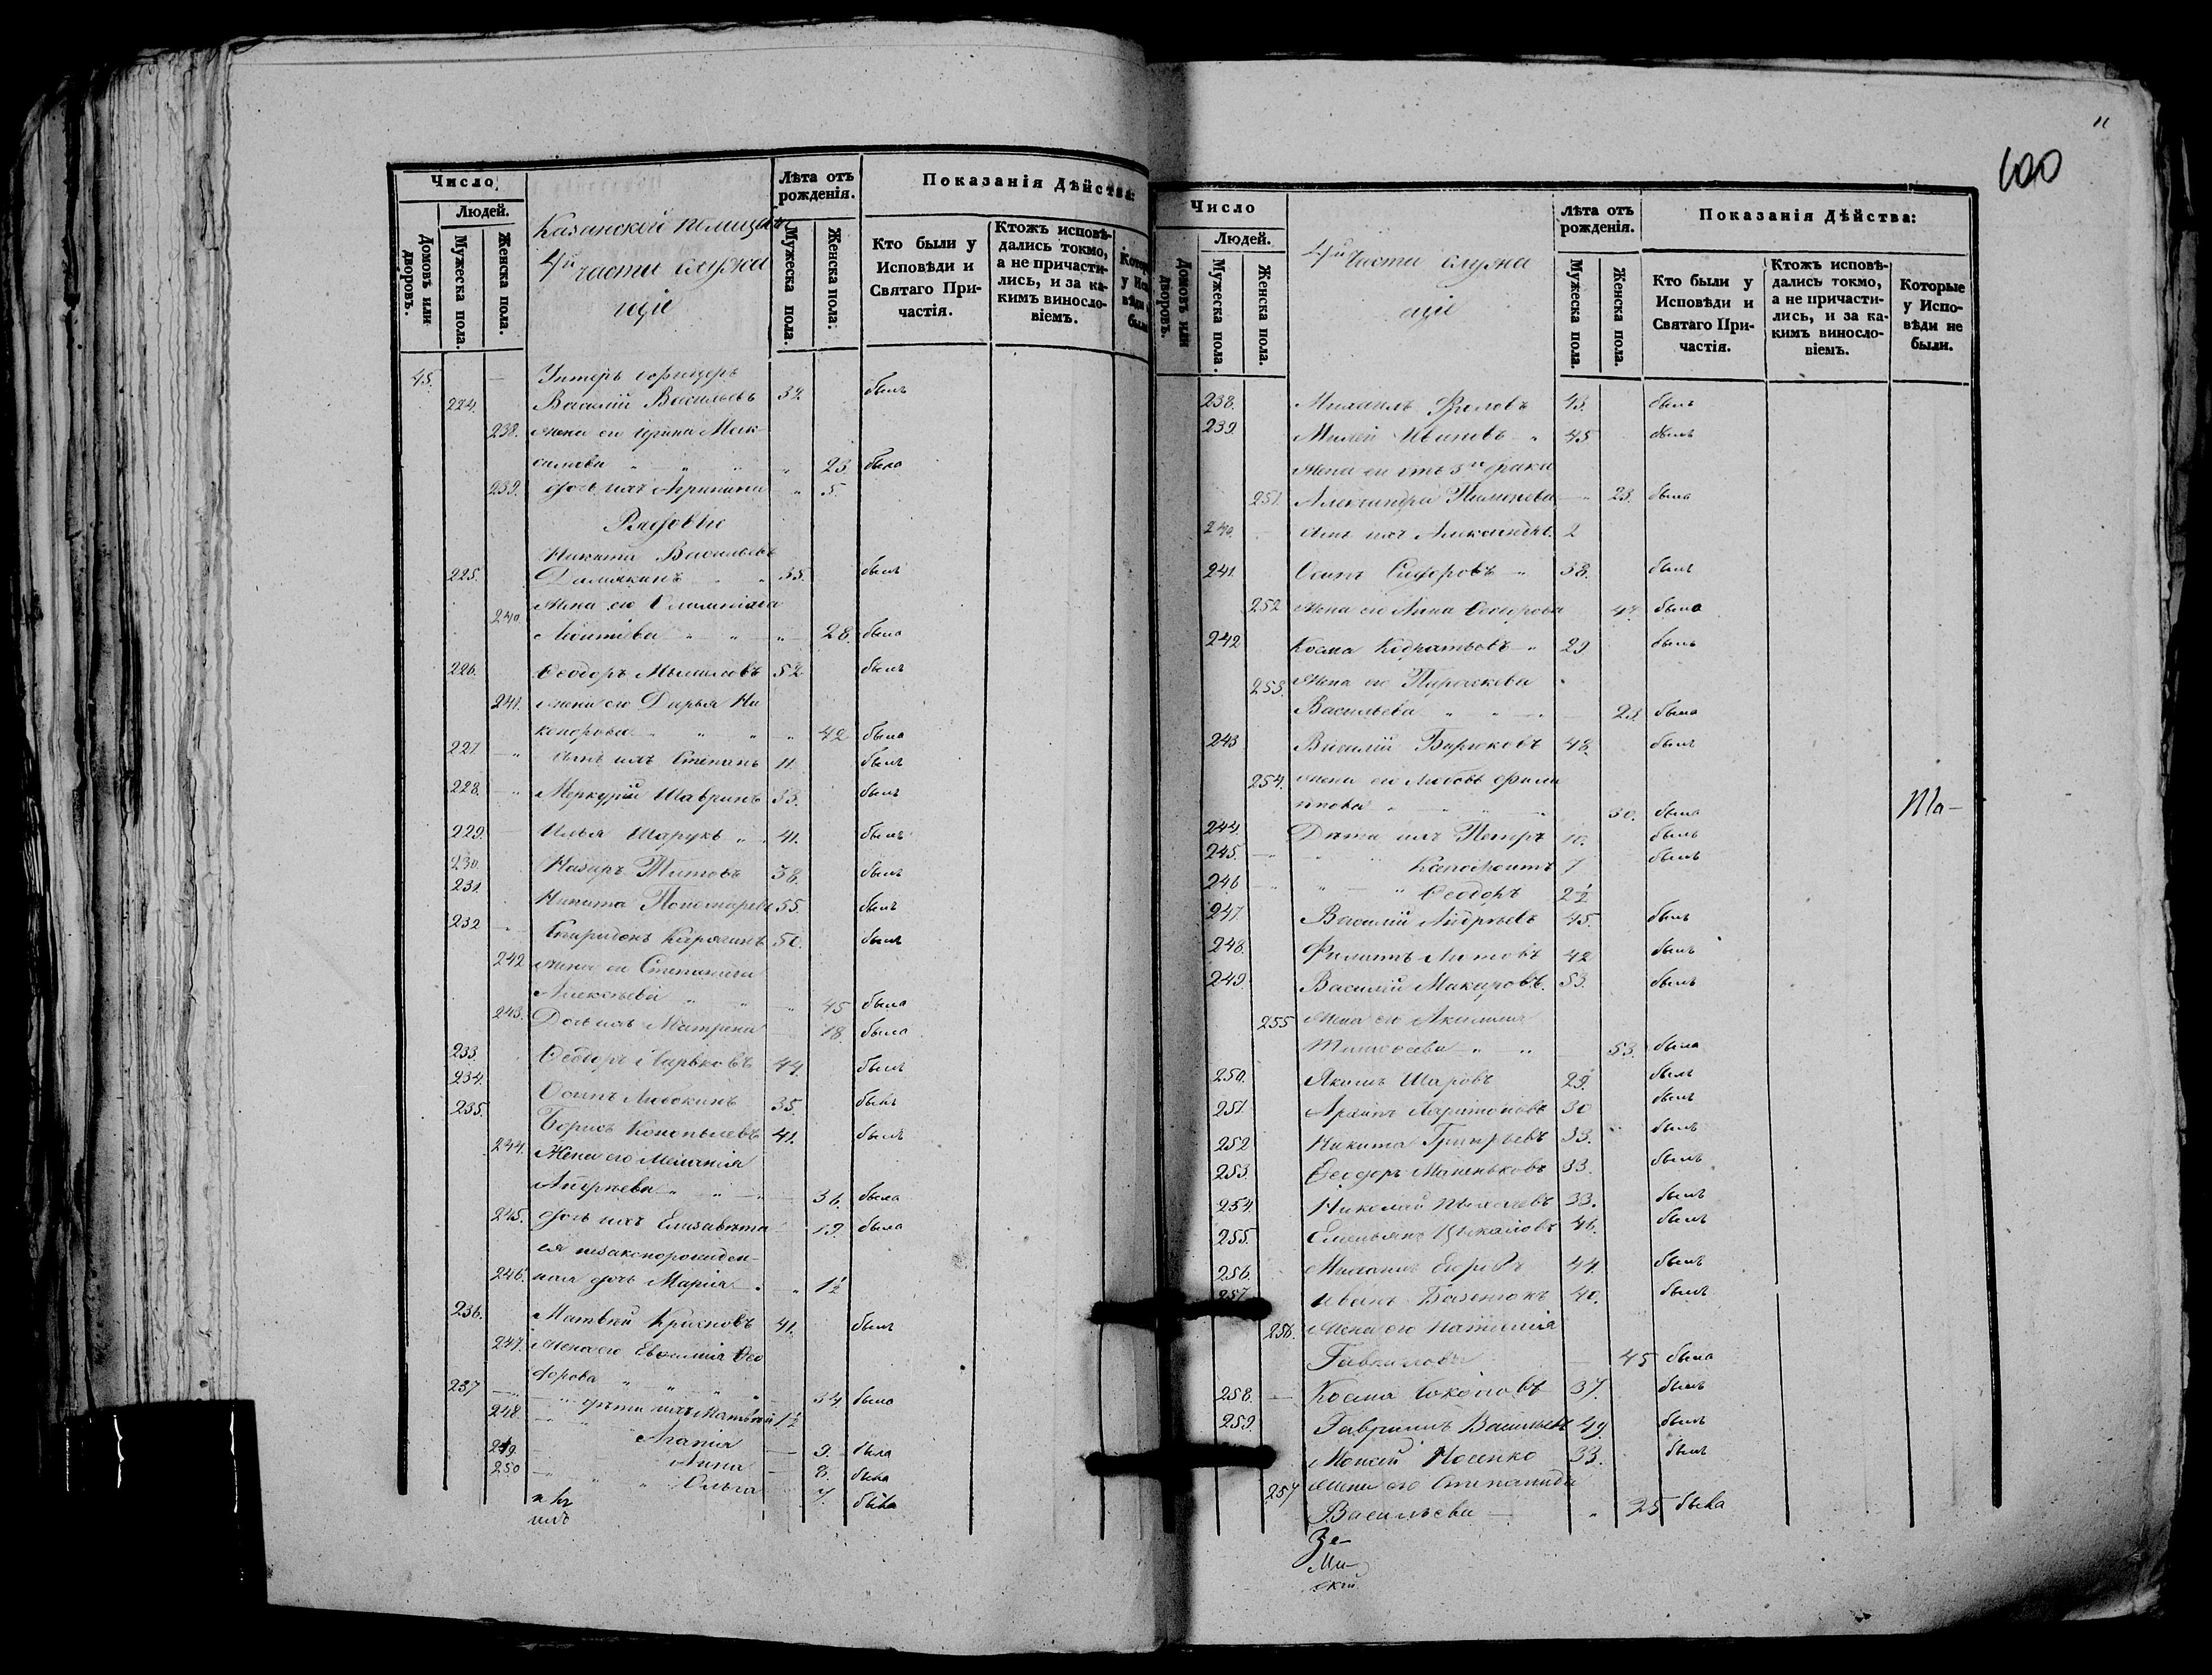 Число
Людей.
Домовъ или дворовъ.
Мужеска пола.
Женска пола.
Казанской полиціи
4й части служа
щіе
Лѣта отъ рожденія.
Мужеска пола.
Женска пола.
Показанія Дѣйства:
Кто были у Исповѣди и Святаго Причастія.
Ктожъ исповѣдались токмо, а не причастились, и за какимъ винословіемъ.
45. Унтеръ офицеръ
224. Василій Васильевъ 32. былъ
238. Жена его Ирина Мак-
симова 23. была
239. Дочь ихъ Агрипина 5.
Рядовые
Никита Васильевъ
225. 35. былъ
240. Жена его
28. была
226. Ѳеодоръ 52 былъ
241. Жена его Дарья Ни
канорова 42 была
227. Сынъ ихъ Степанъ 11. былъ
228. Меркурій Шавринъ 33. былъ
229. Илья Шарукъ 41. былъ
230. Назаръ Титовъ 38. былъ
231. Никита Пономаревъ 55. былъ
232 Спиридонъ 50. былъ
242 Жена его Степанида
Алексѣева 45 была
243. Дочь ихъ Матрена 18. была
233. Ѳеодоръ Харьковъ 44. былъ
234. Осипъ 35. былъ
235. Борисъ 41. былъ
244. Жена его Меланія
Андреева 36. была
245. Дочь ихъ Елизавета 19. была
ея незаконорожден-
246. ная дочь Марія 1½
236. Матвѣй Красновъ 41. былъ
247. Жена его Евфимія Ѳео
дорова 34. была
237 дѣти ихъ Матвѣй 1½
248. Агапія 9. была
249. Анна 8. была
250 Ольга 7. была
100
Число
Людей.
Домовъ или дворовъ.
Мужеска пола.
Женска пола.
4й части служа
щіе
Лѣта отъ рожденія.
Мужеска пола
Женска пола.
Показанія Дѣйства:
Кто были у Исповѣди и Святаго Причастія.
Ктожъ исповѣдались токмо, а не причастились, и за какимъ винословіемъ.
Которые у Исповѣди не были.
238. Михаилъ Фроловъ 43. былъ
239. Ивановъ 45 былъ
Жена его отъ 3го брака
251. Александра Пименова 23. была
240. Сынъ ихъ Александръ. 2
241. Осипъ Сидоровъ 38. былъ
252 Жена его Анна Ѳеодорова 47. была
242 Косма Кодратьевъ 29 былъ
253. Жена его Параскева
Васильева 23. была
243 Василій Бирюковъ 48. былъ
254. Жена его Любовь Фили
ппова 30. была
244. Дѣти ихъ Петръ 10. былъ
245. 7 былъ
246 Ѳеодоръ 2½
247. Василій Андреевъ 45. былъ
248. Филиппъ 42 былъ
249. Василій Макаровъ. 53. былъ
255 Жена его Акилина
Тимоѳеева 53. была
250. Якимъ Шаровъ 29. былъ
251. Харитоновъ 30 былъ
252 Никита Григорьевъ 33. былъ
253. Ѳеодоръ Маненьковъ 33. былъ
254 Николай 33. былъ
255. Емельянъ 46. былъ
256. Михаилъ 44. былъ
257. Иванъ 40. былъ
256. Жена его Наталія
Гаврилова 45 была
258. Косма Соколовъ 37. былъ
259. Гавріилъ Васильевъ 49. былъ
Моисей Носенко 33. былъ
257 Жена его Степанида
Васильева 25 была